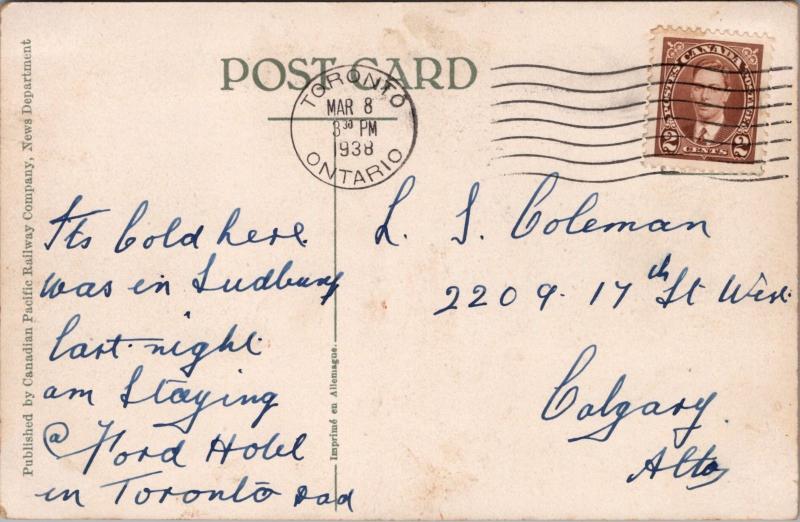 POST CARD
TORONTO
MAR 8
3 30 PM
1938
ONTARIO
CANADA
POSTES POSTAGE
2 CENTS 2
Published by Canadian Pacific Railway Company, News Department
Its Cold here
was in Sudbury
last night
am Staying
@ Ford Hotel
in Toronto Dad
Imprimé en Allemagne.
L. S. Coleman
2209. 17th St West
Calgary.
Alta